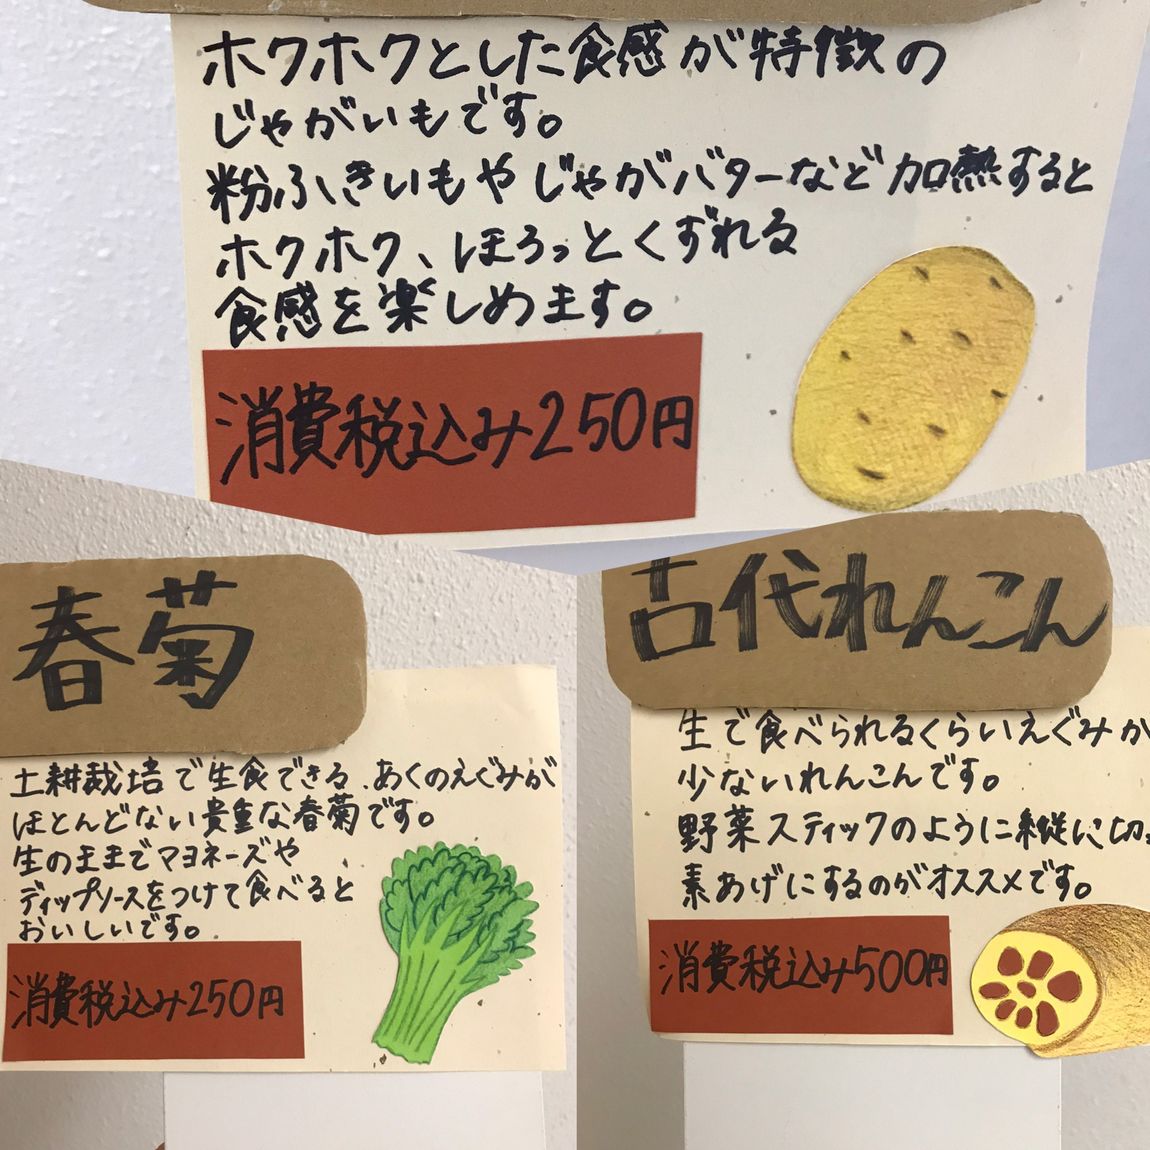 ホクホクとした食感が特徴の
じゃがいもです。
粉ふきいもやじゃがバターなど加熱すると
ホクホク、ほろっとくずれる
食感を楽しめます。
消費税込み250円
春菊
土耕栽培で生食できる、あくのえぐみが
ほとんどない貴重な春菊です。
生のままでマヨネーズや
ディップソースをつけて食べると
おいしいです。
消費税込み250円
古代れんこん
生で食べられるくらいえぐみが
少ないれんこんです。
野菜スティックのように縦に切っ
素あげにするのがオススメです。
消費税込み500円